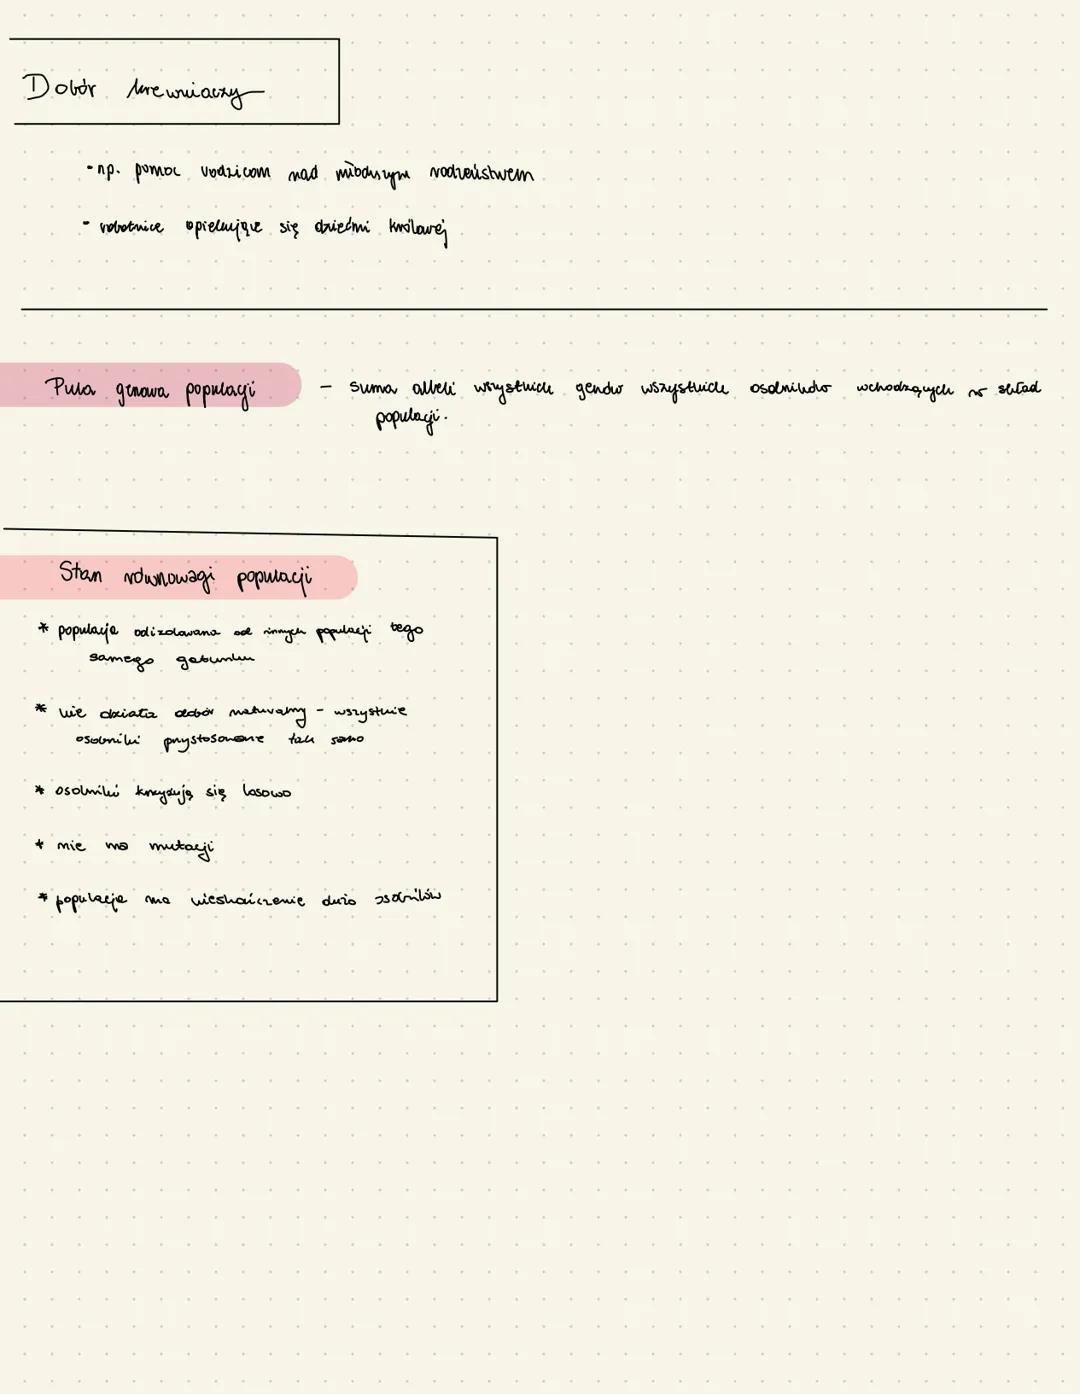 Dobór krewniaczy
- np. pomoc rodzicom nad młodszym rodzeństwem
- robotnice opiekujące się dziećmi królowej
Pula genowa populacji – suma alleli wszystkich genów wszystkich osobników wchodzących w skład
populacji.
Stan równowagi populacji
* populacja odizolowana od innych populacji tego
samego gatunku
* nie działa dobór naturalny – wszystkie
osobniki przystosowane tak samo
* osobniki krzyżują się losowo
* nie ma mutacji
* populacja ma nieskończenie dużo osobników